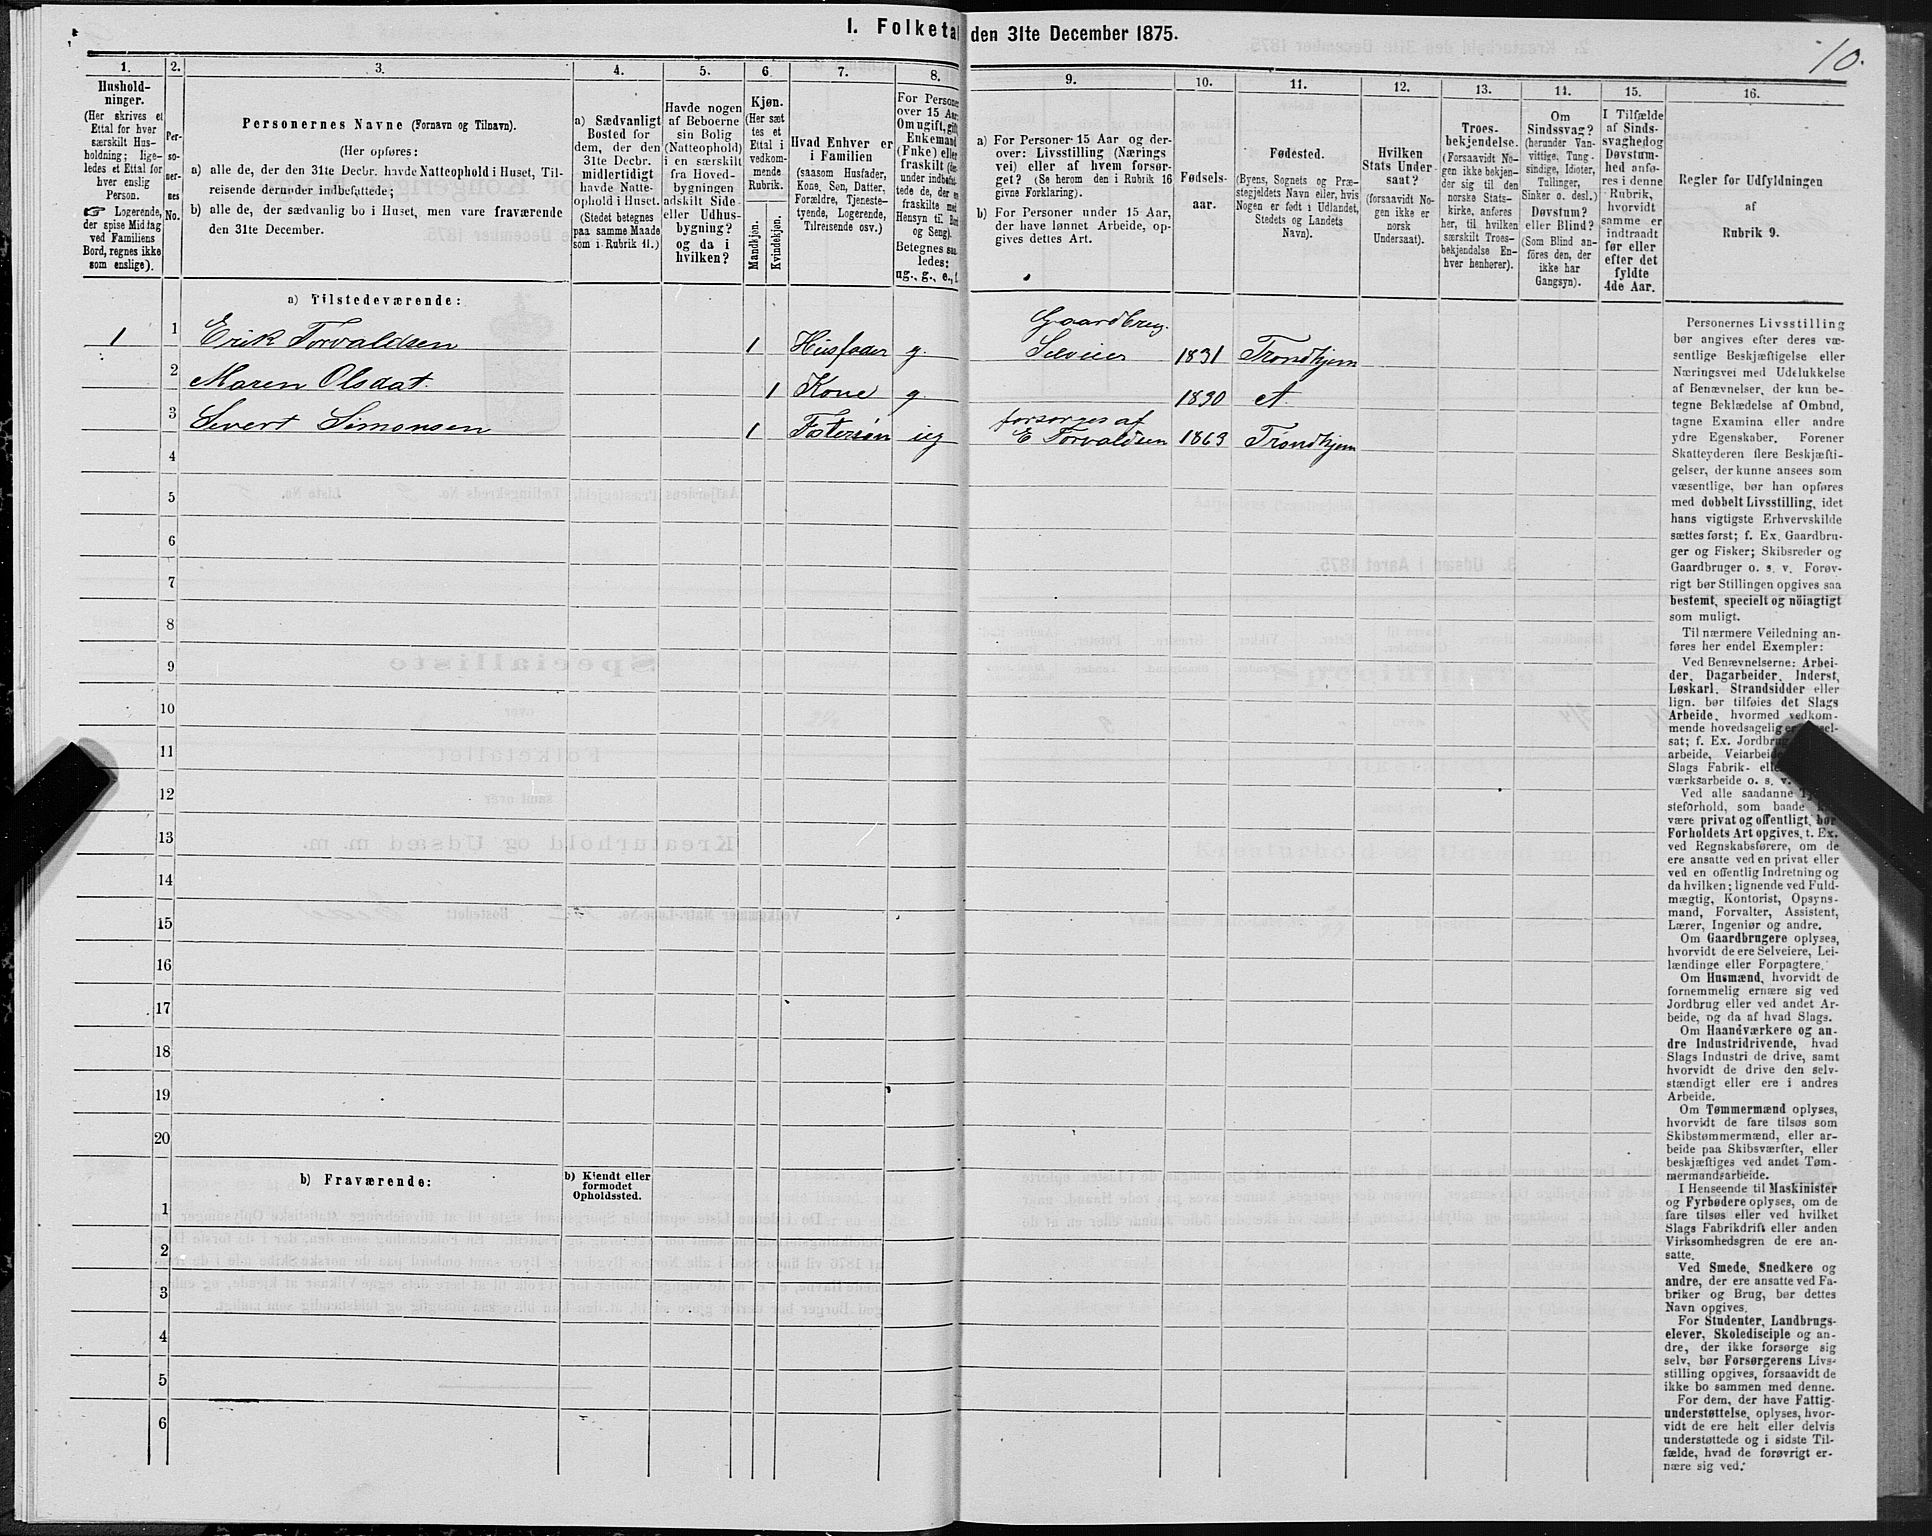 I. Folketal den 31te December 1875.
10.
1.
Hushold-
ninger.
(Her skrives et
Ettal for hver
særskilt Hus-
holdning; lige-
ledes et Ettal for
hver enslig
Person.
Logerende,
der spise Middag
ved Familiens
Bord, regnes ikke
som enslige).
2.
Per-
so-
ner-
nes
No.
3.
Personernes Navne (Fornavn og Tilnavn).
(Her opføres:
a) alle de, der den 31te Decbr. havde Natteophold i Huset, Til-
reisende derunder indbefattede;
b) alle de, der sædvanlig bo i Huset, men vare fraværende
den 31te December.
4.
a) Sædvanligt
Bosted for
dem, der den
31te Decbr.
midlertidigt
havde Natte-
ophold i Huset.
(Stedet betegnes
paa samme Maade
som i Rubrik 11.)
5.
Havde nogen
af Beboerne
sin Bolig
(Natteophold)
i en særskilt
fra Hoved-
bygningen
adskilt Side-
eller Udhus-
bygning?
og da i
hvilken?
6.
Kjøn.
(Her sæt
tes et
Ettal i
vedkom-
mende
Rubrik.
Mandkjøn.
Kvindekjøn.
7.
Hvad Enhver er
i Familien
(saasom Husfader,
Kone, Søn, Datter,
Forældre, Tjeneste-
tyende, Logerende,
Tilreisende osv.)
8.
For Personer
over 15 Aar:
Om ugift, gift,
Enkemand
(Enke) eller
fraskilt
under indbefat-
tede de, der er
fraskilte med
Hensyn til Bord
og Seng).
Betegnes saa-
ledes:
ug., g., e., f.
9.
a) For Personer 15 Aar og der-
over: Livsstilling (Nærings
vei) eller af hvem forsør-
get? (Se herom den i Rubrik 16
givne Forklaring).
b) For Personer under 15 Aar,
der have lønnet Arbeide, op-
gives dettes Art.
10.
Fødsels-
aar.
11.
Fødested.
(Byens, Sognets og Præ-
stegjeldets Navn eller, hvis
Nogen er født i Udlandet,
Stedets og Landets
Navn).
12.
Hvilken
Stats Under-
saat?
(forsaavidt No-
gen ikke er
norsk
Undersaat).
13.
Troes-
bekjendelse.
(Forsaavidt No-
gen ikke bekjen-
der sig til den
norske Stats-
kirke, anføres
her, til hvilken
særskilt Troes-
bekjendelse En-
hver henhører).
14.
Om
Sindssvag?
(herunder Van-
vittige, Tung-
sindige, Idioter,
Tullinger,
Sinker o. desl.)
Døvstum?
eller Blind?
(Som Blind an-
føres den, der
ikke har
Gangsyn).
15.
I Tilfælde
af Sinds-
svaghed og
Døvstum-
hed anfø-
res i denne
Rubrik,
hvorvidt
samme er
indtraadt
før eller
efter det
fyldte
4de Aar.
16.
Regler for Udfyldningen
af
Rubrik 9.
a) Tilstedeværende:
1 1 Erik Torvaldsen 1 Husfader g. Gaardbrug.
Selveier 1831 Trondhjem
2 Maren Olsdat. 1 Kone g. 1830 A
3 Sivert Simonsen 1 Fostersøn ug forsørges af
E Torvaldsen 1863 Trondhjem
4
5
6
7
8
9
10
11
12
13
14
15
16
17
18
19
20
b) Fraværende:
b) Kjendt eller
formodet
Opholdssted.
1
2
3
4
5
6
Personernes Livsstilling
bør angives efter deres væ-
sentlige Beskjæftigelse eller
Næringsvei med Udelukkelse
af Benævnelser, der kun be-
tegne Beklædelse af Ombud,
tagne Examina eller andre
ydre Egenskaber. Forener
Skatteyderen flere Beskjæfti-
gelser, der kunne ansees som
væsentlige, bør han opføres
med dobbelt Livsstilling, idet
hans vigtigste Erhvervskilde
sættes først; f. Ex. Gaardbru-
ger og Fisker; Skibsreder og
Gaardbruger o. s. v. Forøv-
rigt bør Stillingen opgives saa
bestemt, specielt og nöiagtigt
som muligt.
Til nærmere Veiledning an-
føres her endel Exempler:
Ved Benævnelserne: Arbei-
der, Dagarbeider, Inderst,
Løskarl, Strandsidder eller
lign. bør tilføies det Slags
Arbeide, hvormed vedkom-
mende hovedsagelig er
sat; f. Ex. Jordbrug
arbeide, Veiarbeide
Slags Fabrik- eller
værksarbeide o. s. v.
Ved alle saadanne
steforhold, som baade
være privat og offentligt, bør
Forholdets Art opgives, t. Ex.
ved Regnskabsførere, om de
ere ansatte ved en privat eller
ved en offentlig Indretning og
da hvilken; lignende ved Fuld-
mægtig, Kontorist, Opsyns-
mand, Forvalter, Assistent,
Lærer, Ingeniør og andre.
Om Gaardbrugere oplyses,
hvorvidt de ere Selveiere, Lei-
lændinge eller Forpagtere.
Om Husmænd, hvorvidt de
fornemmelig ernære sig ved
Jordbrug eller ved andet Ar-
beide, og da af hvad Slags.
Om Haandværkere og an-
dre Industridrivende, hvad
Slags Industri de drive, samt
hvorvidt de drive den selv-
stændigt eller ere i andres
Arbeide.
Om Tømmermænd oplyses,
hvorvidt de fare tilsøs som
Skibstømmermænd, eller ar-
beide paa Skibsværfter, eller
beskjæftiges ved andet Tøm-
mermandsarbeide.
I Henseende til Maskinister
og Fyrbødere oplyses, om de
fare tilsøs eller ved hvilket
Slags Fabrikdrift eller anden
Virksomhedsgren de ere an-
satte.
Ved Smede, Snedkere og
andre, der ere ansatte ved Fa-
briker og Brug, bør dettes
Navn opgives.
For Studenter, Landbrugs-
elever, Skoledisciple og an-
dre, der ikke forsørge sig
selv, bør Forsørgerens Livs-
stilling opgives, forsaavidt de
ikke bo sammen med denne.
For dem, der have Fattig-
understøttelse, oplyses, hvor-
vidt de ere helt eller delvis
understøttede og i sidste Til-
fælde, hvad de forøvrigt er-
nære sig ved.